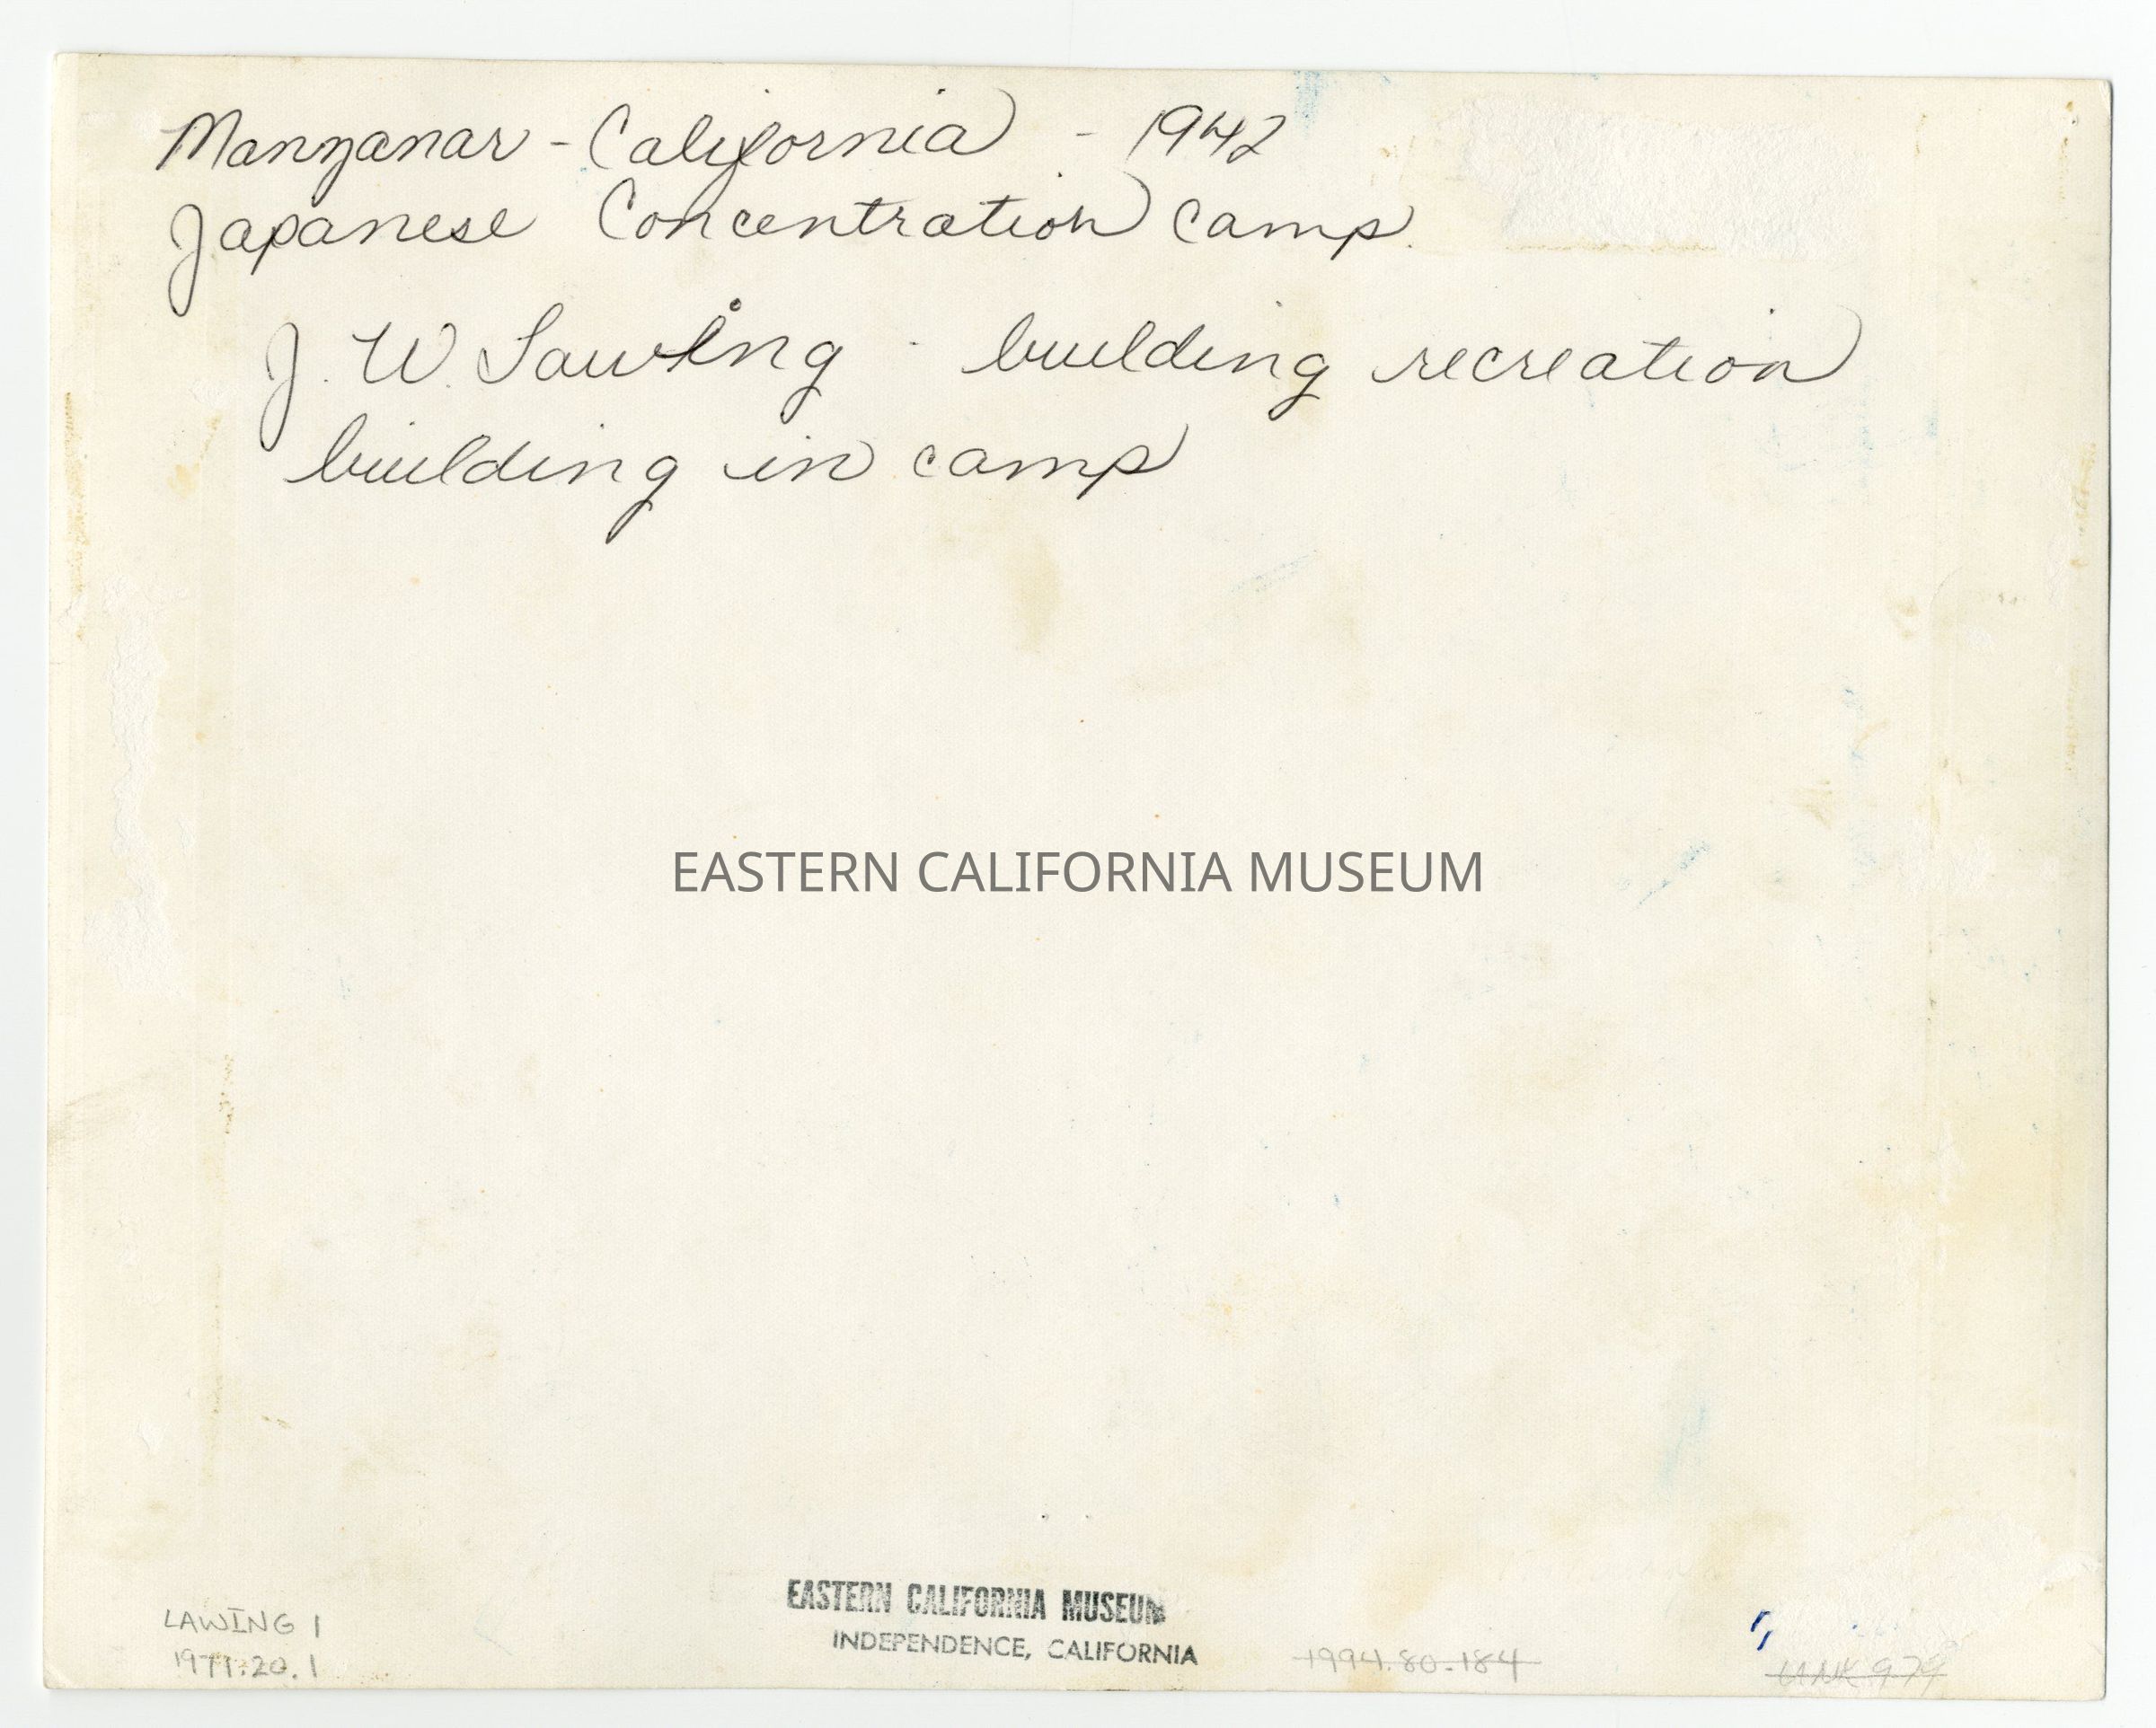 Manzanar - California - 1942
Japanese Concentration Camp.
J. W. Lawing - building recreation
building in camp
EASTERN CALIFORNIA MUSEUM
LAWING 1
1971.20.1
EASTERN CALIFORNIA MUSEUM
INDEPENDENCE, CALIFORNIA
1994.80.184
UNK 9.79